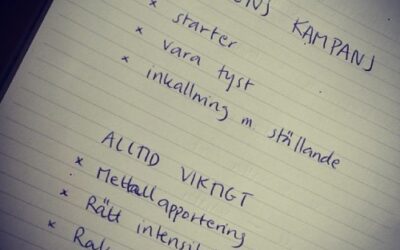 KAMPANJ
* starter
* vara tyst
* inkallning m. ställande
ALLTID VIKTIGT
* Metallapportering
* Rätt